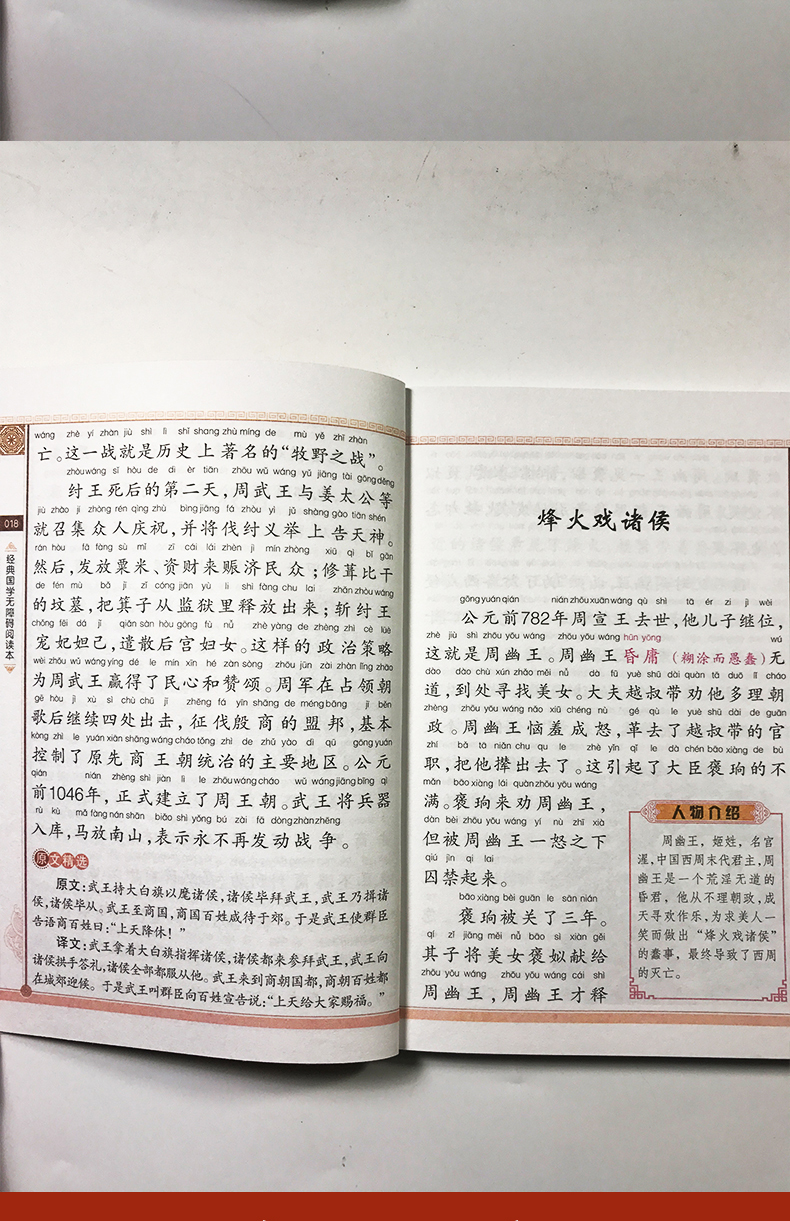 wáng zhè yí zhàn jiù shì lì shǐ shang zhù míng de mù yě zhī zhàn
亡。这一战就是历史上著名的“牧野之战”。
zhòu wáng sǐ hòu de dì èr tiān zhōu wǔ wáng yǔ jiāng tài gōng děng
纣王死后的第二天，周武王与姜太公等
jiù zhào jí zhòng rén qìng zhù bìng jiāng fá zhòu yì jǔ shàng gào tiān shén
就召集众人庆祝，并将伐纣义举上告天神。
rán hòu fā fàng sù mǐ zī cái lái zhèn jì mín zhòng xiū qì bǐ gān
然后，发放粟米、资财来赈济民众；修葺比干
de fén mù bǎ jī zǐ cóng jiān yù li shì fàng chu lai zhǎn zhòu wáng
的坟墓，把箕子从监狱里释放出来；斩纣王
chǒng fēi dá jǐ qiǎn sàn hòu gōng fù nǚ zhè yàng de zhèng zhì cè lüè
宠妃妲己，遣散后宫妇女。这样的政治策略
wèi zhōu wǔ wáng yíng dé le mín xīn hé zàn sòng zhōu jūn zài zhàn lǐng zhāo
为周武王赢得了民心和赞颂。周军在占领朝
gē hòu jì xù sì chù chū jī zhēng fá yīn shāng de méng bāng jī běn
歌后继续四处出击，征伐殷商的盟邦，基本
kòng zhì le yuán xiān shāng wáng cháo tǒng zhì de zhǔ yào dì qū gōng yuán
控制了原先商王朝统治的主要地区。公元
qián nián zhèng shì jiàn lì le zhōu wáng cháo wǔ wáng jiāng bīng qì
前1046年，正式建立了周王朝。武王将兵器
rù kù mǎ fàng nán shān biǎo shì yǒng bú zài fā dòng zhàn zhēng
入库，马放南山，表示永不再发动战争。
原文精选
原文：武王持大白旗以麾诸侯，诸侯毕拜武王，武王乃揖诸
侯，诸侯毕从。武王至商国，商国百姓咸待于郊。于是武王使群臣
告语商百姓曰：“上天降休！”
译文：武王拿着大白旗指挥诸侯，诸侯都来参拜武王，武王向
诸侯拱手答礼，诸侯全部都服从他。武王来到商朝国都，商朝百姓都
在城郊迎侯。于是武王叫群臣向百姓宣告说：“上天给大家赐福。”
018
经典国学无障碍阅读本
烽火戏诸侯
gōng yuán qián nián zhōu xuān wáng qù shì tā ér zi jì wèi
公元前782年周宣王去世，他儿子继位，
zhè jiù shì zhōu yōu wáng zhōu yōu wáng hūn yōng wú
这就是周幽王。周幽王昏庸（糊涂而愚蠢）无
dào dào chù xún zhǎo měi nǚ dà fū yuè shū dài quàn tā duō lǐ cháo
道，到处寻找美女。大夫越叔带劝他多理朝
zhèng zhōu yōu wáng nǎo xiū chéng nù gé qù le yuè shū dài de guān
政。周幽王恼羞成怒，革去了越叔带的官
zhí bǎ tā niǎn chu qu le zhè yǐn qǐ le dà chén bāo xiǎng de bù
职，把他撵出去了。这引起了大臣褒珦的不
mǎn bāo xiǎng lái quàn zhōu yōu wáng
满。褒珦来劝周幽王，
dàn bèi zhōu yōu wáng yí nù zhī xià
但被周幽王一怒之下
qiú jìn qi lai
囚禁起来。
bāo xiǎng bèi guān le sān nián
褒珦被关了三年。
qí zǐ jiāng měi nǚ bāo sì xiàn gěi
其子将美女褒姒献给
zhōu yōu wáng zhōu yōu wáng cái shì
周幽王，周幽王才释
人物介绍
周幽王，姬姓，名宫
湦，中国西周末代君主，周
幽王是一个荒淫无道的
昏君，他从不理朝政，成
天寻欢作乐，为求美人一
笑而做出“烽火戏诸侯”
的蠢事，最终导致了西周
的灭亡。